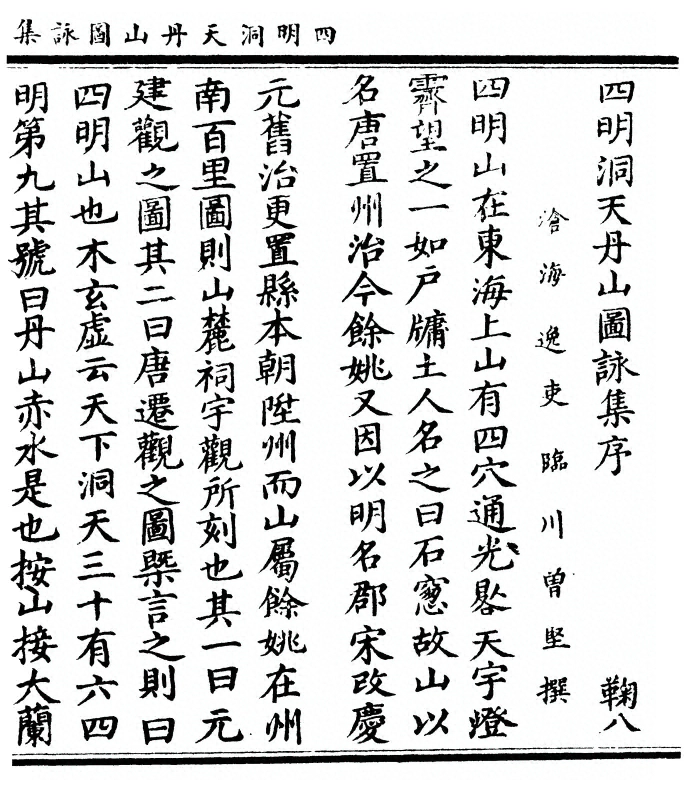 四明洞天丹山圖詠集
四明洞天丹山圖詠集序 鞠八
滄海逸吏臨川曾堅撰
四明山在東海上山有四穴通光晷天宇燈
霽望之一如戶牖土人名之曰石窻故山以
名唐置州治今餘姚又因以明名郡宋改慶
元舊治更置縣本朝陞州而山屬餘姚在州
南百里圖則山麓祠宇觀所刻也其一曰元
建觀之圖其二曰唐遷觀之圖槩言之則曰
四明山也木玄虛云天下洞天三十有六四
明第九其號曰丹山赤水是也按山接大蘭